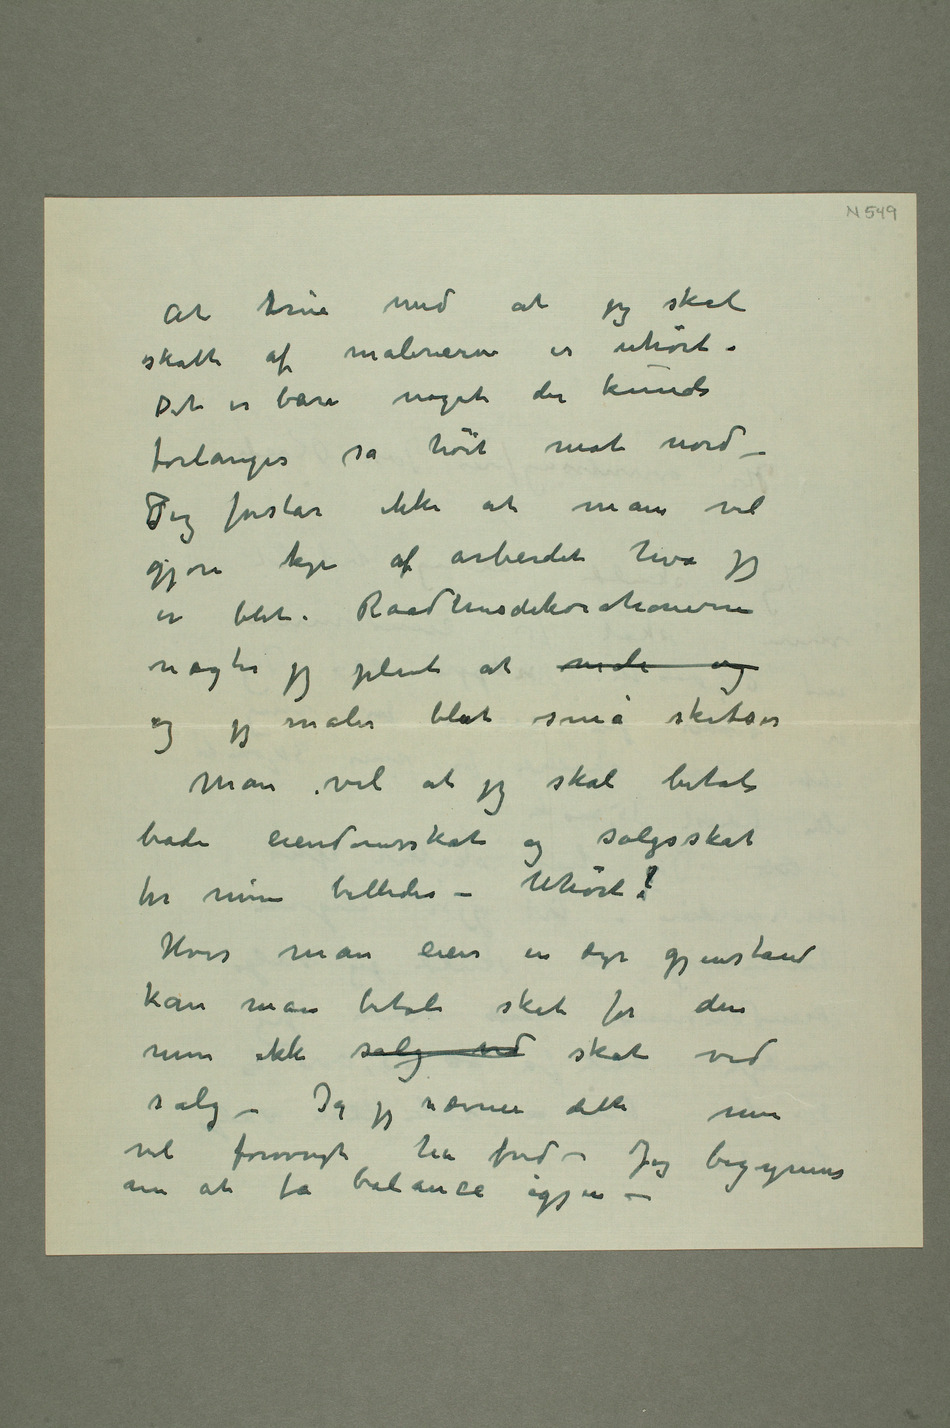 N 549
At true med at jeg skal
skatte af malerierne er uhørt –
Det er bare noget der kunde
forlanges så høit mot nord –
Jeg forstår ikke at man vil
gjøre af arbeidet hva jeg
er blit. Raadhusdekorationerne
nægter jeg plent at male og
og jeg maler blot små skitser
Man vil at jeg skal betale
både eiendomsskat og salgsskat
for mine billeder – Uhørt!
Hvis man eier en dyr gjenstand
kan man betale skat for den
men ikke salg ved skat ved
salg – jeg nævner dette men
vil forøvrigt ha fred – Jeg begynner
nu at få balance igjen –